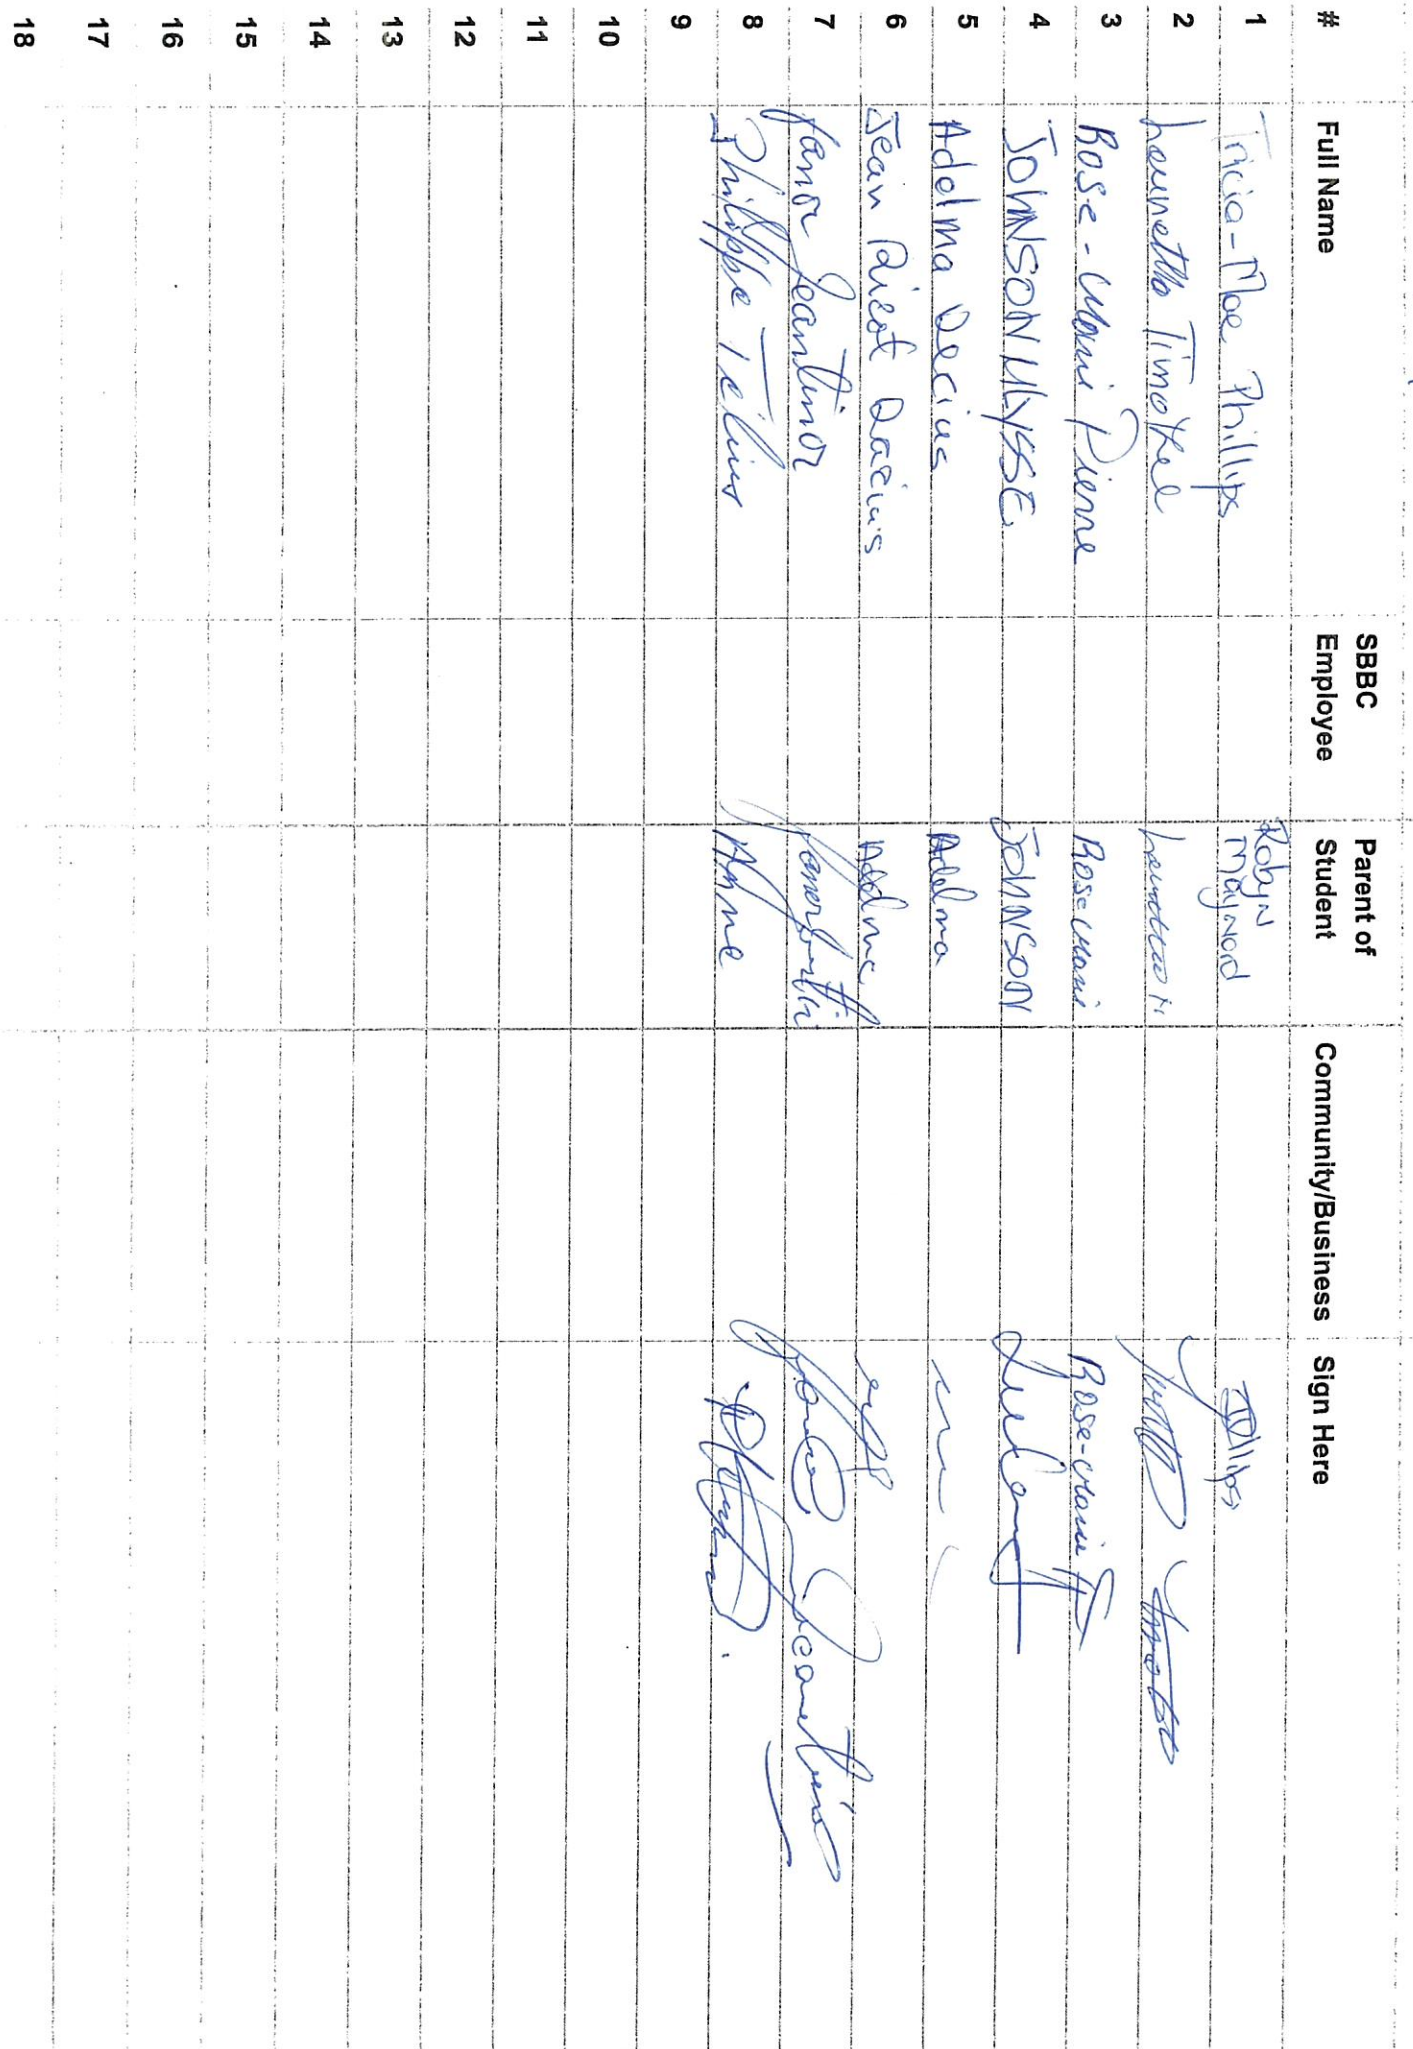 # Full Name SBBC Employee Parent of Student Community/Business Sign Here
1 Tricia-Mae Phillips Robyn Maynord Phillips
2 Timothee
3 Rose-Marie Pierre Rose-Marie Rose-Marie
4 JOHNSON ULYSSE JOHNSON
5 Adelma Decius Adelma
6 Jean Ricot Dacius Adelma
7 Fanor Jeantinor Jeantinor
8 Philippe Telius Anne
9
10
11
12
13
14
15
16
17
18